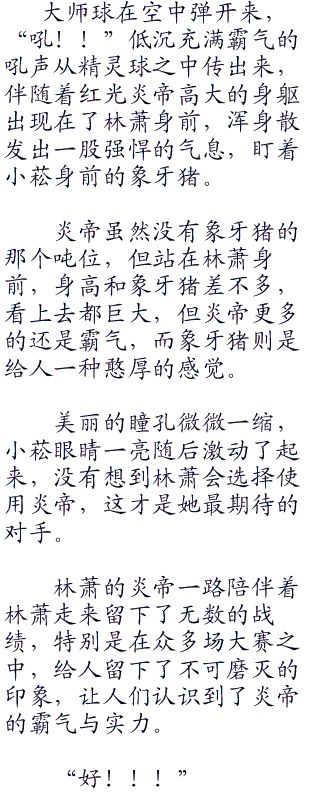 大师球在空中弹开来，
“吼！！”低沉充满霸气的
吼声从精灵球之中传出来，
伴随着红光炎帝高大的身躯
出现在了林萧身前，浑身散
发出一股强悍的气息，盯着
小菘身前的象牙猪。
炎帝虽然没有象牙猪的
那个吨位，但站在林萧身
前，身高和象牙猪差不多，
看上去都巨大，但炎帝更多
的还是霸气，而象牙猪则是
给人一种憨厚的感觉。
美丽的瞳孔微微一缩，
小菘眼睛一亮随后激动了起
来，没有想到林萧会选择使
用炎帝，这才是她最期待的
对手。
林萧的炎帝一路陪伴着
林萧走来留下了无数的战
绩，特别是在众多场大赛之
中，给人留下了不可磨灭的
印象，让人们认识到了炎帝
的霸气与实力。
“好！！！”